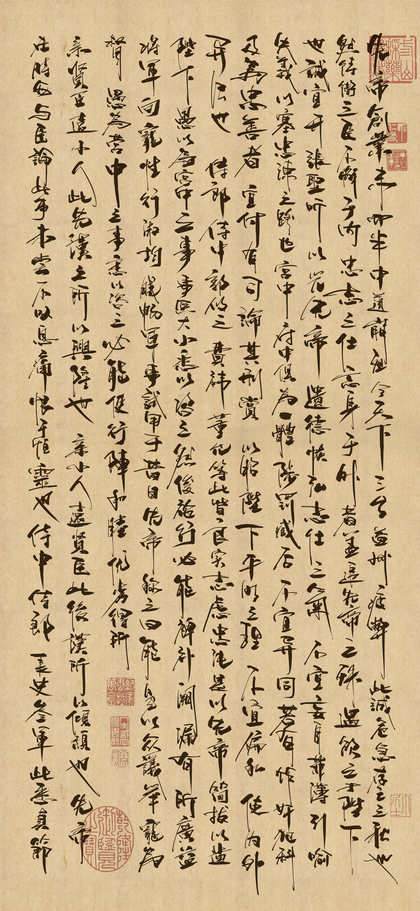 先帝創業未半中道崩殂今天下三分益州疲弊此誠危急存亡之秋也
然侍衛之臣不懈于內忠志之士忘身于外者蓋追先帝之殊遇欲之于陛下
也誠宜開張聖聽以光先帝遺德恢弘志士之氣不宜妄自菲薄引喻
失義以塞忠諫之路也宮中府中俱為一體陟罰臧否不宜異同若有作奸犯科
及為忠善者宜付有司論其刑賞以昭陛下平明之理不宜偏私使內外
異法也侍郎侍中郭攸之費禕董允等此皆良實志慮忠純是以先帝簡拔以遺
陛下愚以為宮中之事事無大小悉以咨之然後施行必能裨補闕漏有所廣益
將軍向寵性行淑均曉暢軍事試用于昔日先帝稱之曰能是以眾議舉寵為
督愚為營中之事悉以咨之必能使行陣和睦優劣得所
親賢臣遠小人此先漢之所以興隆也親小人遠賢臣此後漢所以傾頹也先帝
在時每與臣論此事未嘗不嘆息痛恨于桓靈也侍中侍郎長史參軍此悉貞節